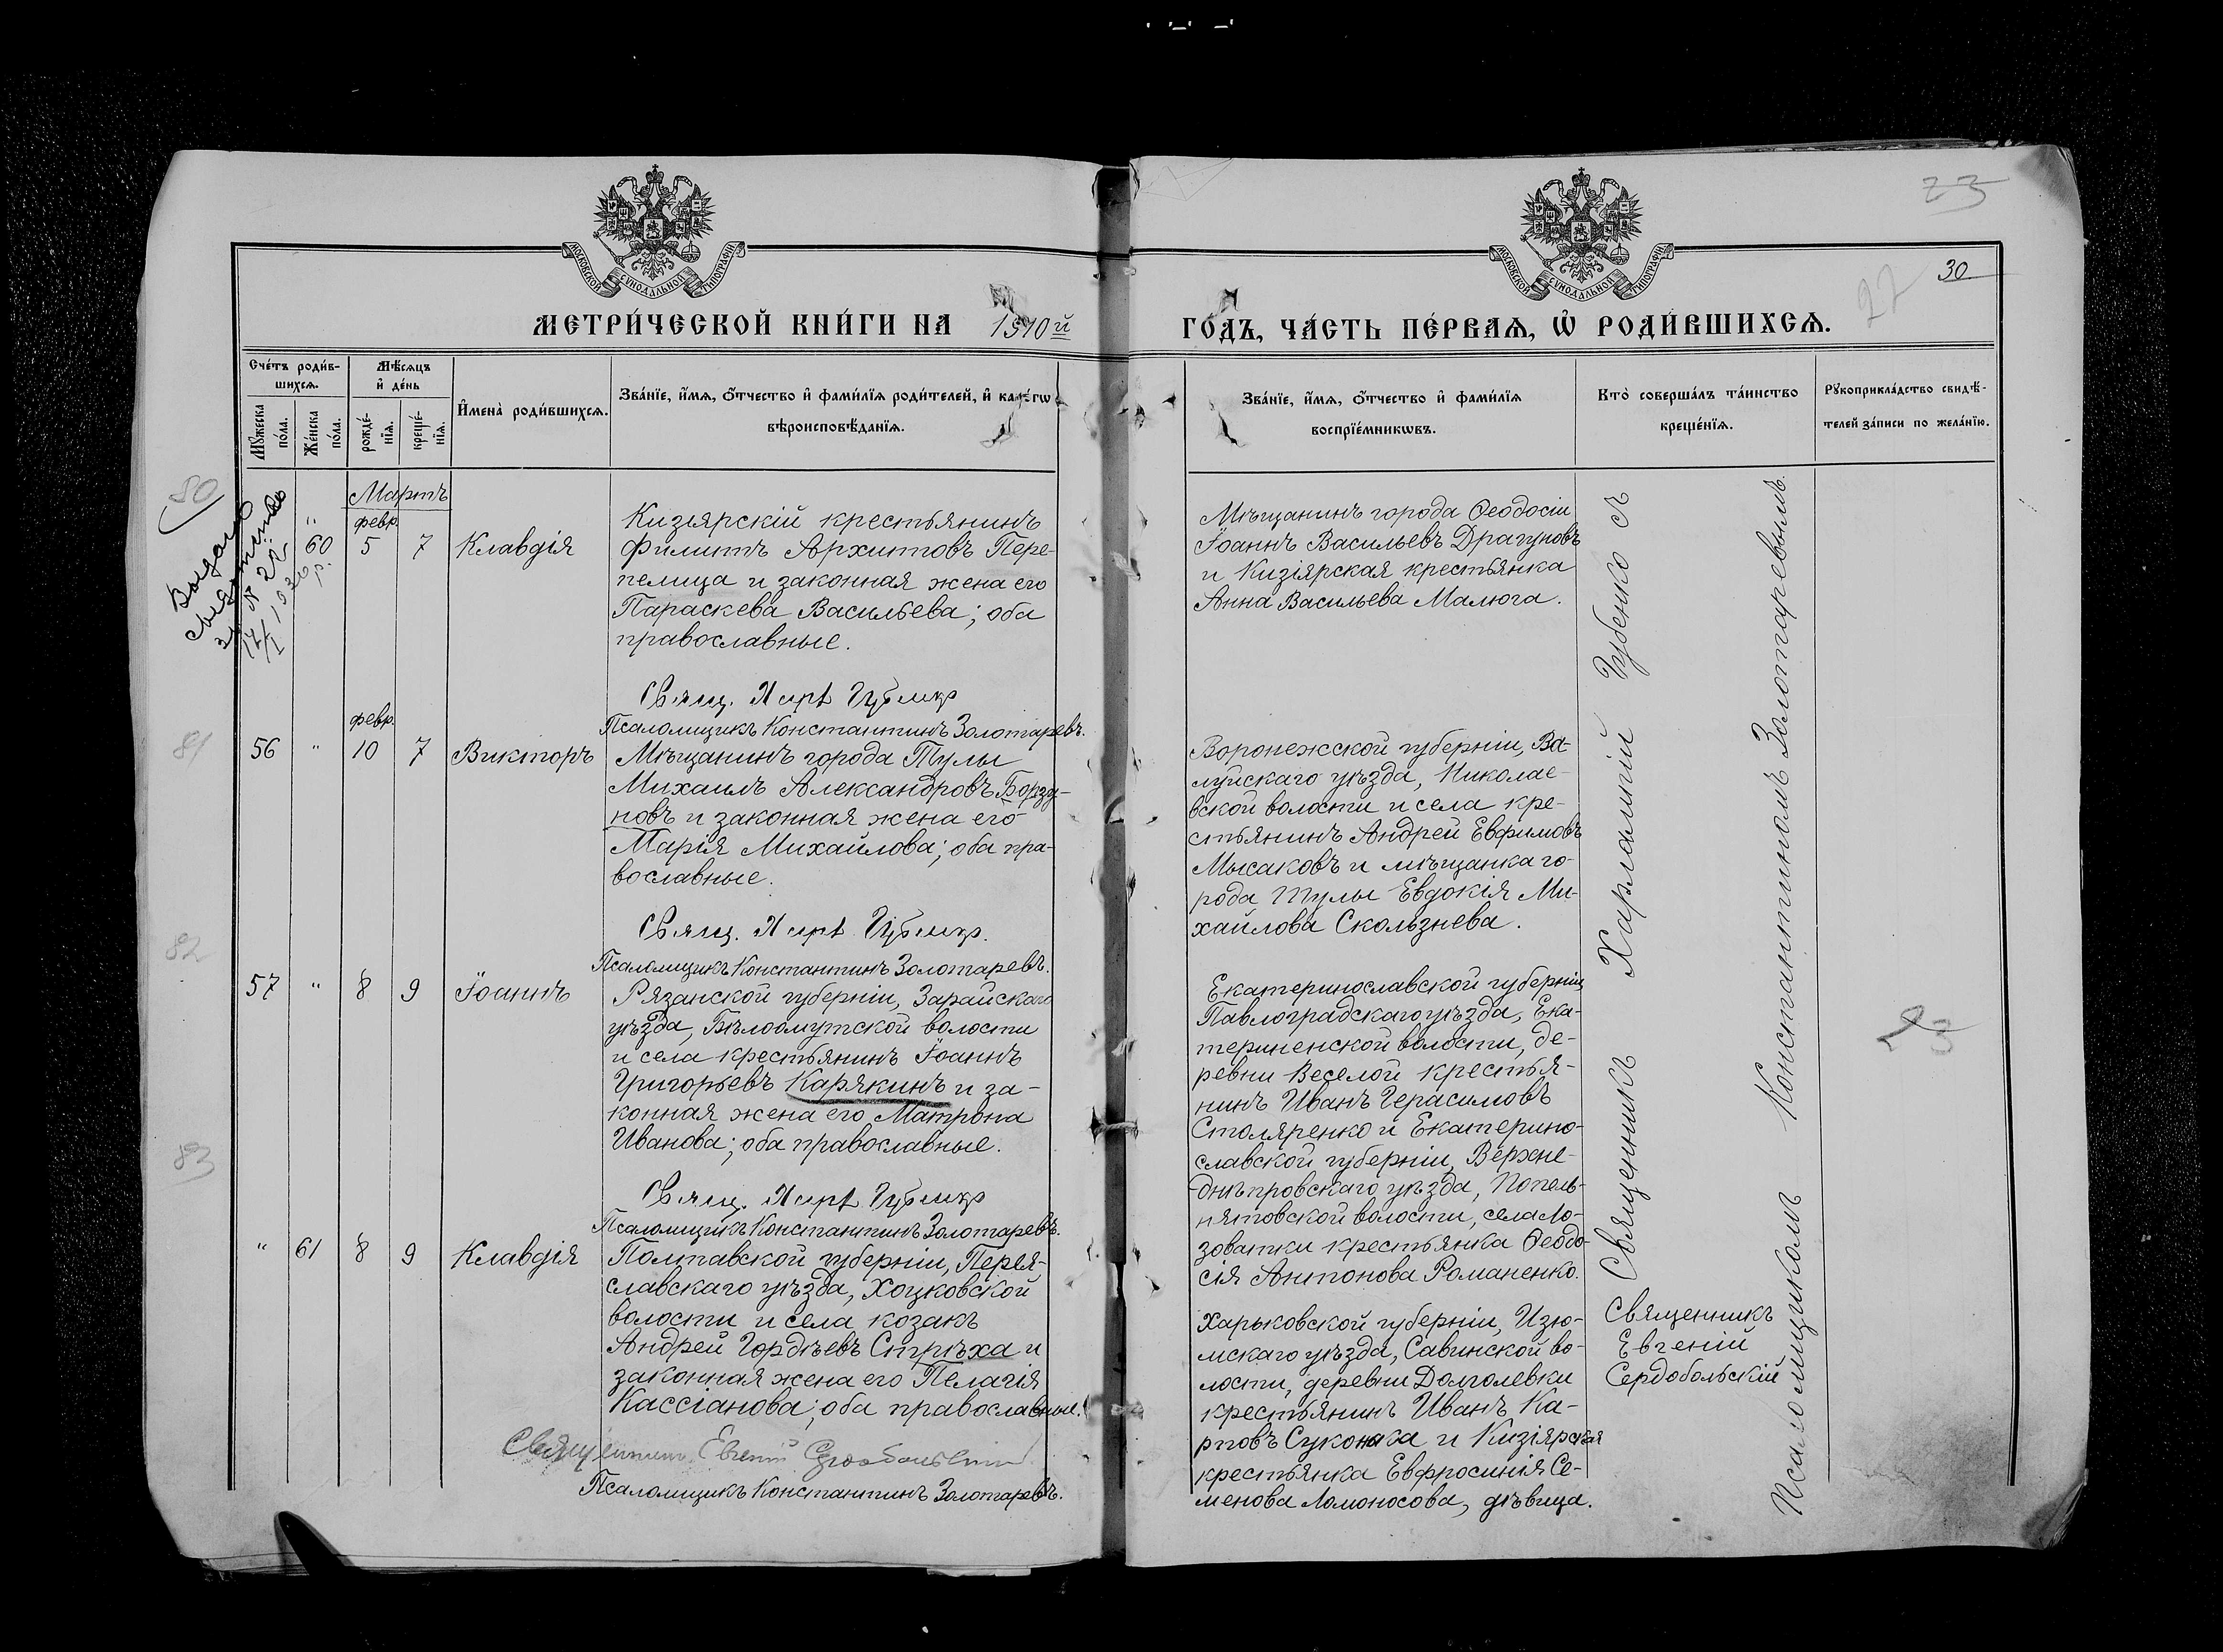 23
30
27
МОСКОВСКОЙ СѴНОДАЛЬНОЙ ТИПОГРАФІИ
МОСКОВСКОЙ СѴНОДАЛЬНОЙ ТИПОГРАФІИ
МЕТРИ́ЧЕСКОЙ КНИ́ГИ НА 1910й
ГОДЪ, ЧА́СТЬ ПЕ́РВАѦ, Ѡ РОДИ́ВШИХСѦ.
Сче́тъ роди́в-
шихсѧ.
Мꙋ́жеска
по́ла.
Же́нска
по́ла.
Мѣ́сѧцъ
и҆ де́нь
рожде́-
нїѧ.
креще́-
нїѧ.
И҆мена̀ роди́вшихсѧ.
Зва́нїе, и҆́мѧ, ѻ҆́тчество и҆ фами́лїѧ роди́телей, и҆ како́гѡ
вѣроисповѣ́данїѧ.
Зва́нїе, и҆́мѧ, ѻ҆́тчество и҆ фами́лїѧ
воспрїе́мникѡвъ.
Кто̀ соверша́лъ та́инство
креще́нїѧ.
Рꙋкоприкла́дство свидѣ́-
телей за́писи по жела́нїю.
80
Мартъ
"
60
февр.
5
7
Клавдія
Кизіярскій крестьянинъ
Филиппъ Архиповъ Пере-
пелица и законная жена его
Параскева Васильева; оба
православные.
Свящ. Харл. Губенко
Псаломщикъ Константинъ Золотаревъ.
Мѣщанинъ города Ѳеодосіи
Іоаннъ Васильевъ Драгуновъ
и Кизіярская крестьянка
Анна Васильева Малюга.
81
56
"
февр.
10
7
Викторъ
Мѣщанинъ города Тулы
Михаилъ Александровъ Борзу-
новъ и законная жена его
Марія Михайлова; оба пра-
вославные.
Свящ. Харл. Губенко.
Псаломщикъ Константинъ Золотаревъ.
Воронежской губерніи, Ва-
луйскаго уѣзда, Николае-
вской волости и села кре-
стьянинъ Андрей Евфимовъ
Мысаковъ и мѣщанка го-
рода Тулы Евдокія Ми-
хайлова Скользнева.
82
57
"
8
9
Іоаннъ
Рязанской губерніи, Зарайскаго
уѣзда, Бѣлоомутской волости
и села крестьянинъ Іоаннъ
Григорьевъ Карякинъ и за-
конная жена его Матрона
Иванова; оба православные.
Свящ. Харл. Губенко
Псаломщикъ Константинъ Золотаревъ.
Екатеринославской губерніи
Павлоградскаго уѣзда, Ека-
териненской волости, де-
ревни Веселой крестья-
нинъ Иванъ Герасимовъ
Столяренко и Екатерино-
славской губерніи, Верхне-
днѣпровскаго уѣзда, Попель-
нятовской волости, села Ло-
зоватки крестьянка Ѳеодо-
сія Антонова Романенко.
83
"
61
8
9
Клавдія
Полтавской губерніи, Перея-
славскаго уѣзда, Хоцковской
волости и села козакъ
Андрей Гордѣевъ Стрѣха и
законная жена его Пелагія
Кассіанова; оба православные.
Священникъ Евгеній Сердобольскій
Псаломщикъ Константинъ Золотаревъ.
Харьковской губерніи, Изю-
мскаго уѣзда, Савинской во-
лости, деревни Долголевки
крестьянинъ Иванъ Ка-
рповъ Суконака и Кизіярская
крестьянка Евфросинія Се-
менова Ломоносова, дѣвица.
Священникъ
Евгеній
Сердобольскій
Священникъ Харлампій Губенко съ
Псаломщикомъ Константиномъ Золотаревымъ.
23